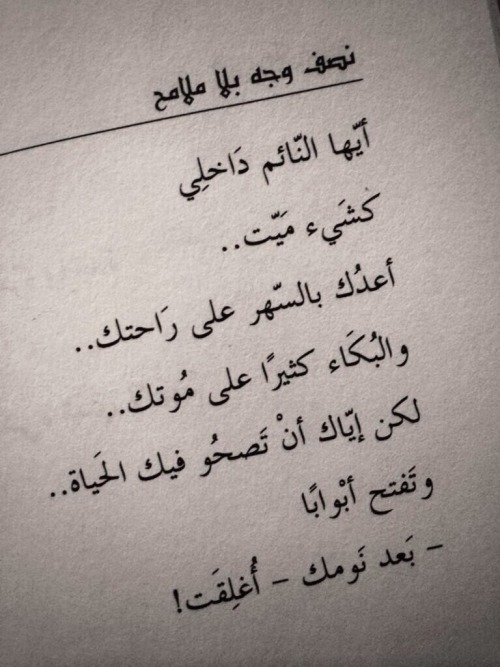 نصف وجه بلا ملامح
أيّها النّائم دَاخلِي
كشَيء مَيّت..
أعدُك بالسّهر على رَاحتك..
والبُكَاء كثيرًا على مُوتك..
لكن إيّاك أنْ تَصحُو فيك الحَياة..
وتَفتح أبْوابًا
- بَعد نَومك - أُغلِقَت!